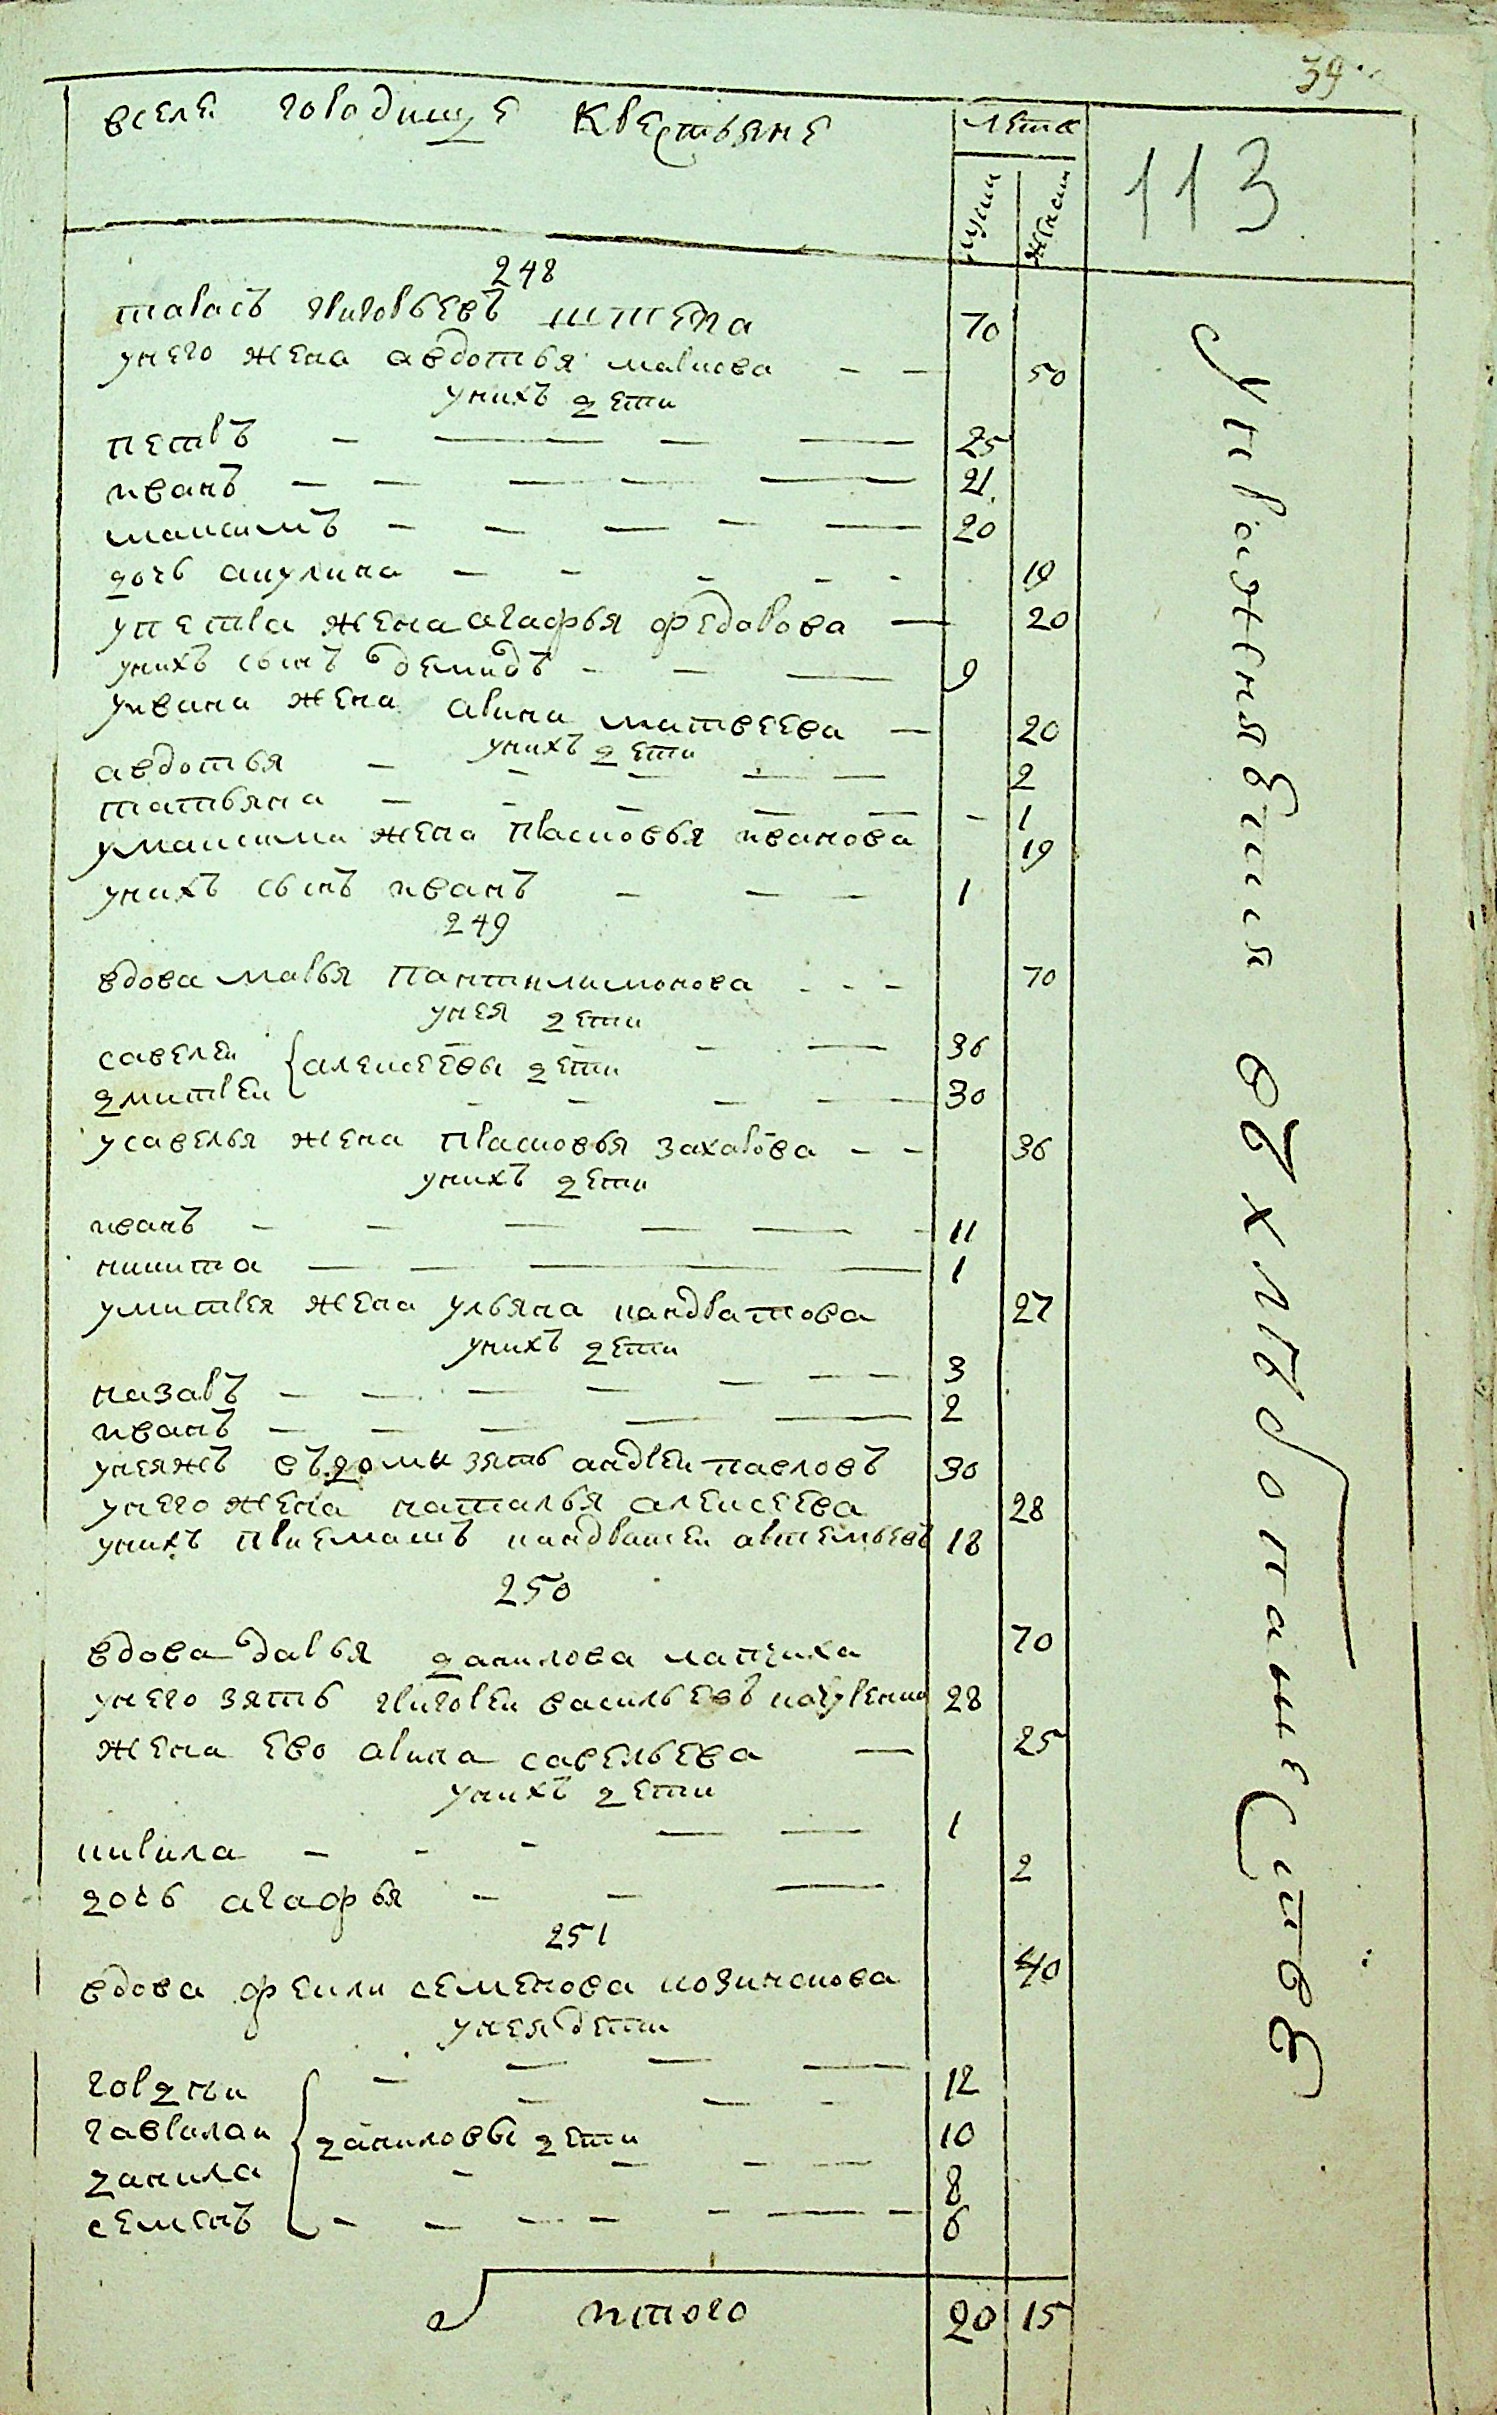 39
вселе городище Крестьяне
лета
мужи
женски
113
248
тарасъ григорьевъ штепа 70
унего жена авдотья маркова 50
унихъ дети
петръ 25
иванъ 21
максимъ 20
дочь акулина 19
упетра жена агафья федорова 20
унихъ сынъ демидъ 9
уивана жена арина матвеева 20
унихъ дети
авдотья 2
татьяна 1
умаксима жена прасковья иванова 19
унихъ сынъ иванъ 1
249
вдова марья пантилимонова 70
унея дети
савелеи 36
алексеевы дети
дмитреи 30
усавелья жена прасковья захарова 36
унихъ дети
иванъ 11
никита 1
умитрея жена ульяна кандратова 27
унихъ дети
назаръ 3
иванъ 2
унеяжъ въдоми зять андреи павловъ 30
унего жена наталья алексеева 28
унихъ приемашъ кандратеи артемьевъ 18
250
вдова дарья данилова лапчиха 70
унего зять григореи васильевъ 28
жена ево арина савельева 25
унихъ дети
кирила 1
дочь агафья 2
251
вдова фекли семенова козинскова 40
унея дети
гордеи 12
гаврилаи 10
даниловы дети
данила 8
семенъ 6
итого 20 15